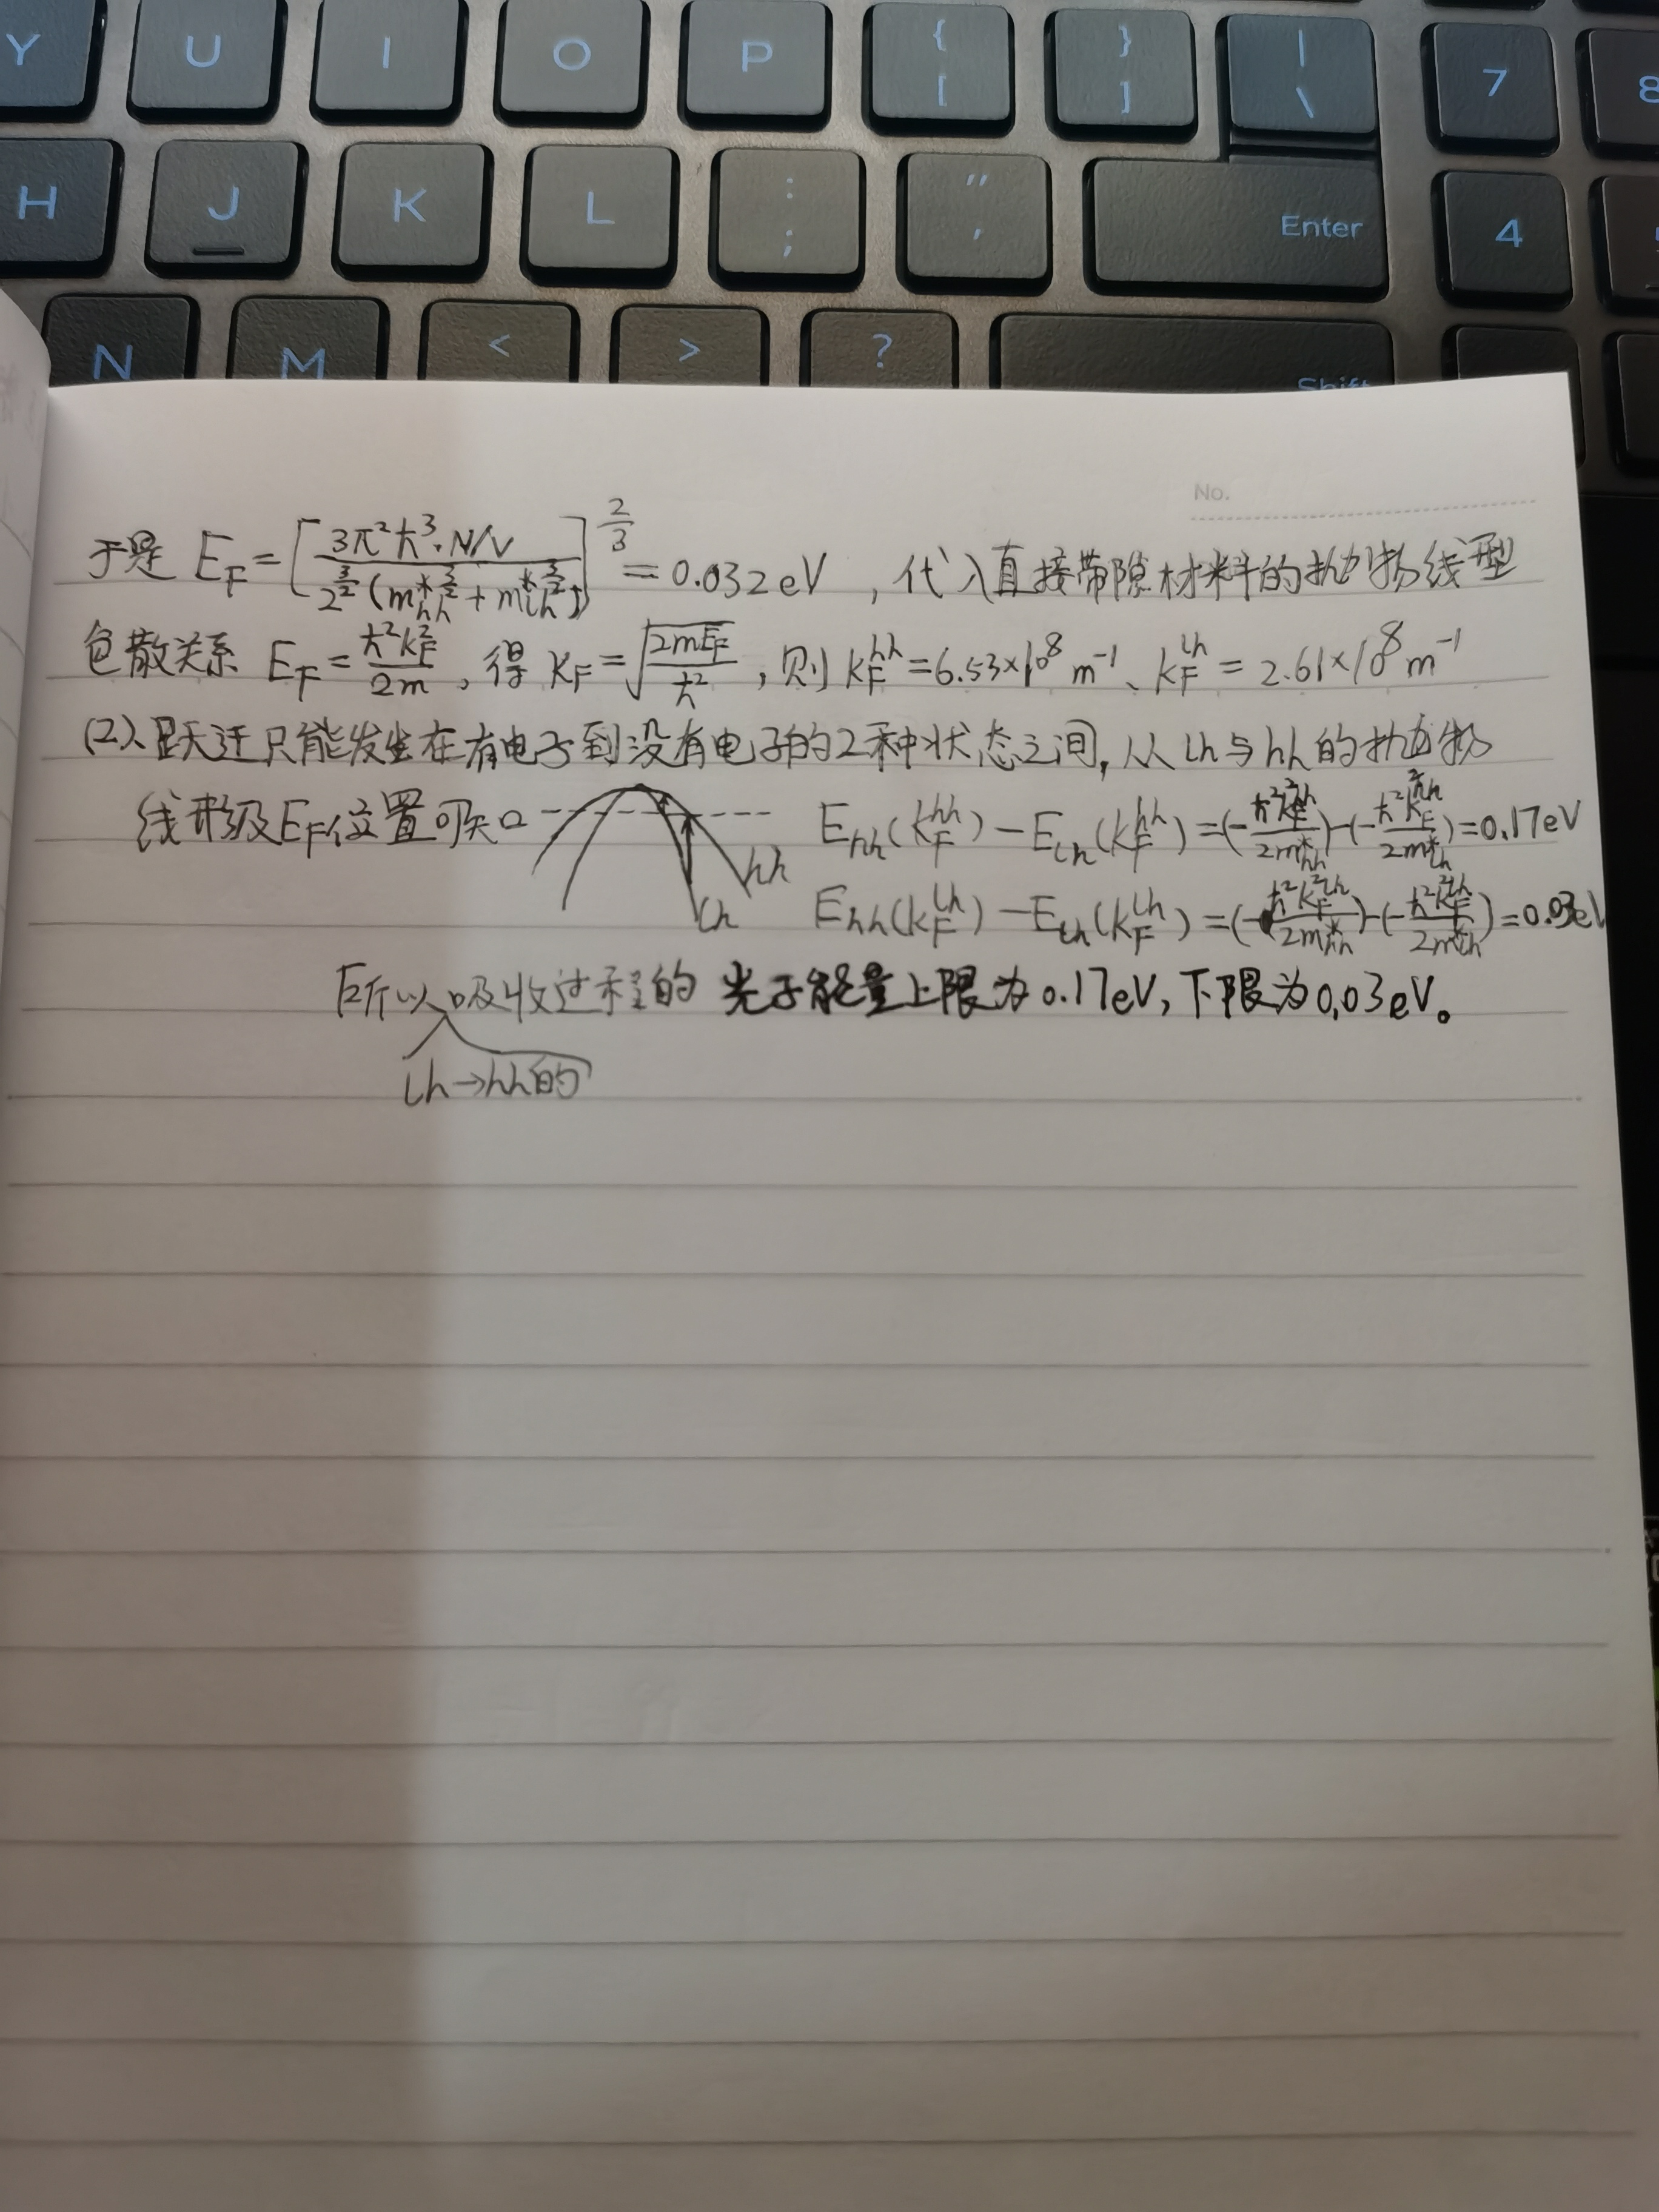 Y U I O P { [ } ] | \ 7 8
H J K L : ; " ' Enter 4
N M < > ? Shift
No.
于是 E_F = [3π²ħ³·N/V / 2^(3/2) (m*_hh^(3/2) + m*_lh^(3/2))]^(2/3) = 0.032eV , 代入直接带隙材料的抛物线型
色散关系 E_F = ħ²k_F²/2m , 得 k_F = √(2mE_F/ħ²) , 则 k_F^hh = 6.53×10^8 m^-1、k_F^lh = 2.61×10^8 m^-1
(2)、跃迁只能发生在有电子到没有电子的2种状态之间, 从lh与hh的抛物
线形级E_F位置可知 E_hh(k_F^hh) - E_lh(k_F^hh) = (-ħ²k_F^2hh/2m*_hh) - (-ħ²k_F^2hh/2m*_lh) = 0.17eV
hh
lh E_hh(k_F^lh) - E_lh(k_F^lh) = (-ħ²k_F^2lh/2m*_hh) - (-ħ²k_F^2lh/2m*_lh) = 0.03eV
所以吸收过程的光子能量上限为0.17eV, 下限为0.03eV。
lh→hh的